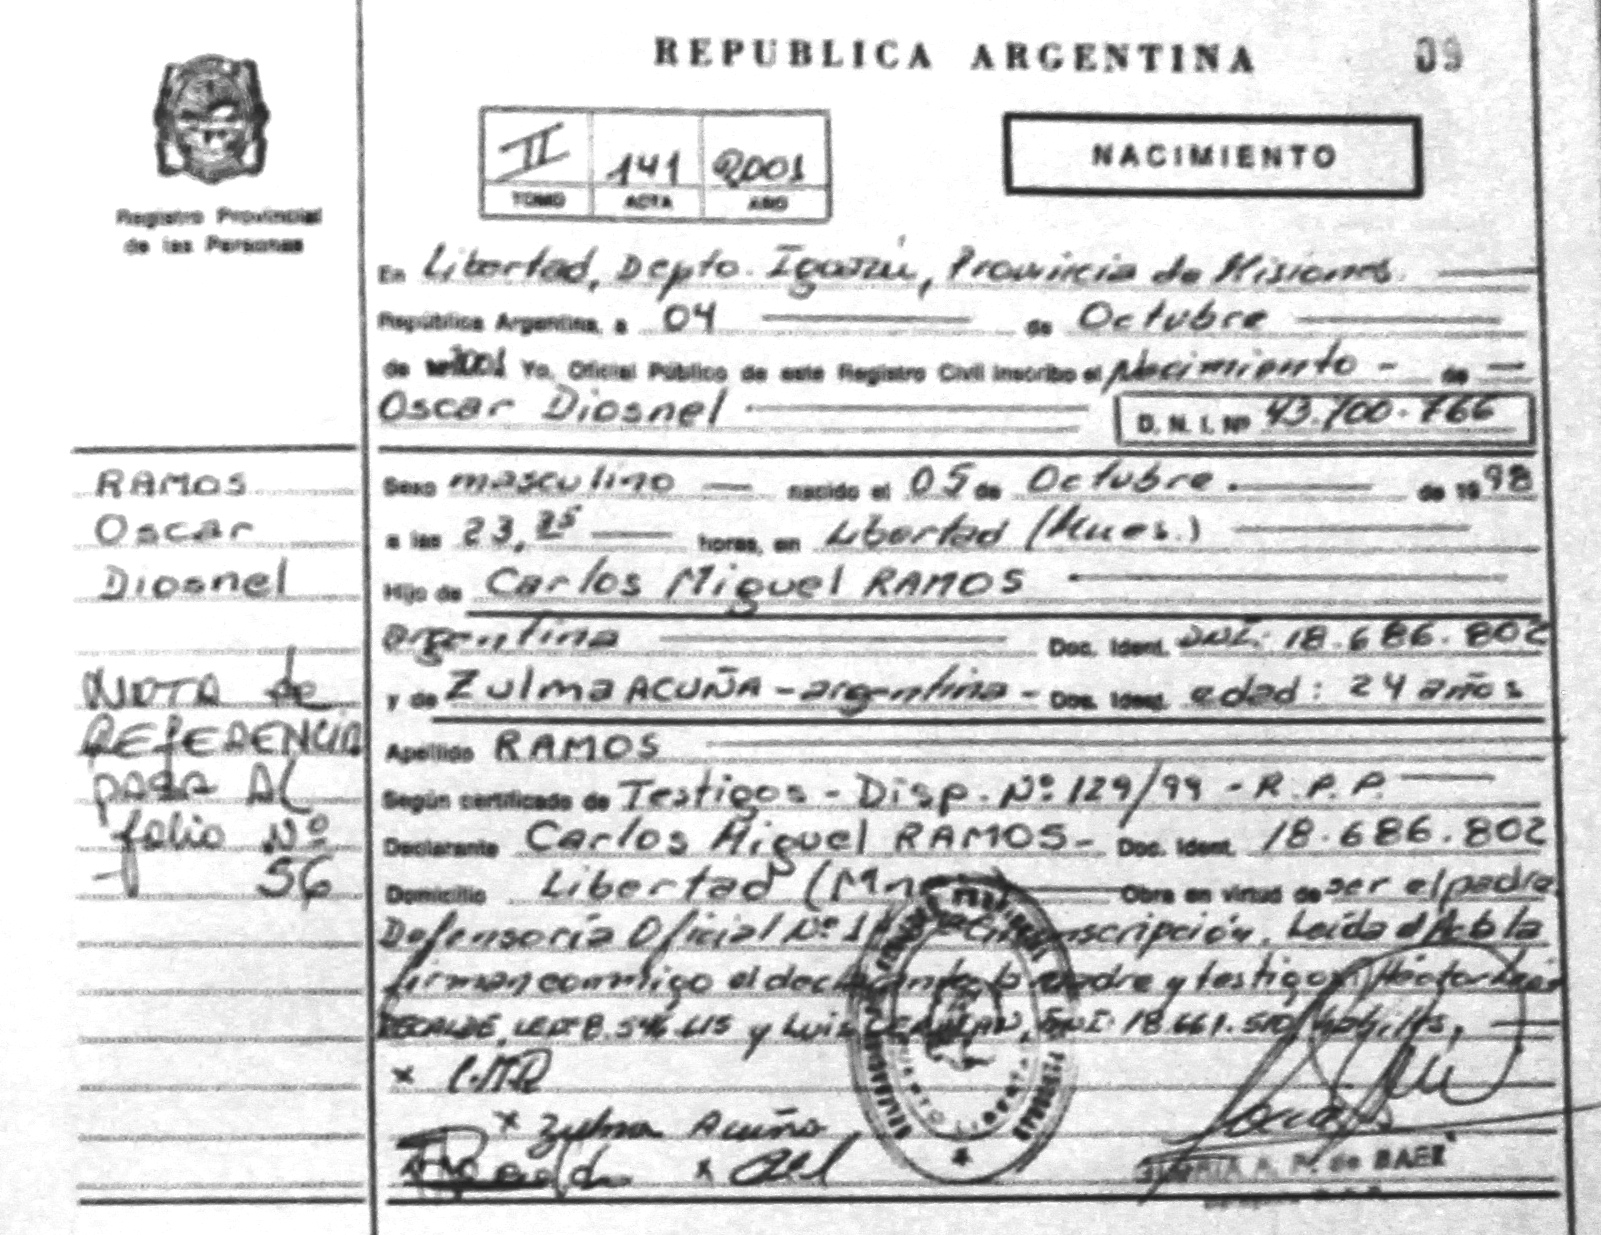 REPUBLICA ARGENTINA
09
Registro Provincial
de las Personas
II 141 2001
TOMO ACTA AÑO
NACIMIENTO
En Libertad, Depto. Iguazú, Provincia de Misiones
República Argentina, a 04 de Octubre
de 2001 Yo, Oficial Público de este Registro Civil inscribo el Nacimiento - de
Oscar Diosnel
D. N. I. Nº 43.700.766
RAMOS
Oscar
Diosnel
NOTA de
REFERENCIA
PASA AL
folio Nº
56
Sexo masculino nacido el 05 de Octubre de 1998
a las 23,25 horas, en Libertad (Mnes.)
Hijo de Carlos Miguel RAMOS
argentina Doc. Ident. DNI: 18.686.802
y de Zulma ACUÑA - argentina - Doc. Ident. edad: 24 años
Apellido RAMOS
Según certificado de Testigos - Disp. Nº 129/99 - R.P.P.
Declarante Carlos Miguel RAMOS - Doc. Ident. 18.686.802
Domicilio Libertad Obra en virtud de ser el padre.
Defensoría Oficial Nº inscripción. Leída el Acta la
firman conmigo el declarante, la madre y testigos: Héctor
RECALDE, 8.546.615 y Luis DNI: 18.661.510
x C.M.R
x Zulma Acuña
x
A. P. de BAEZ